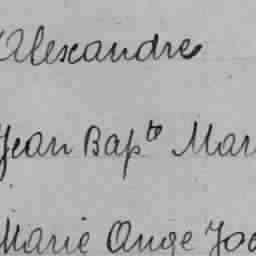 Alexandre
Jean Bapte Mar
Marie Ange Jo